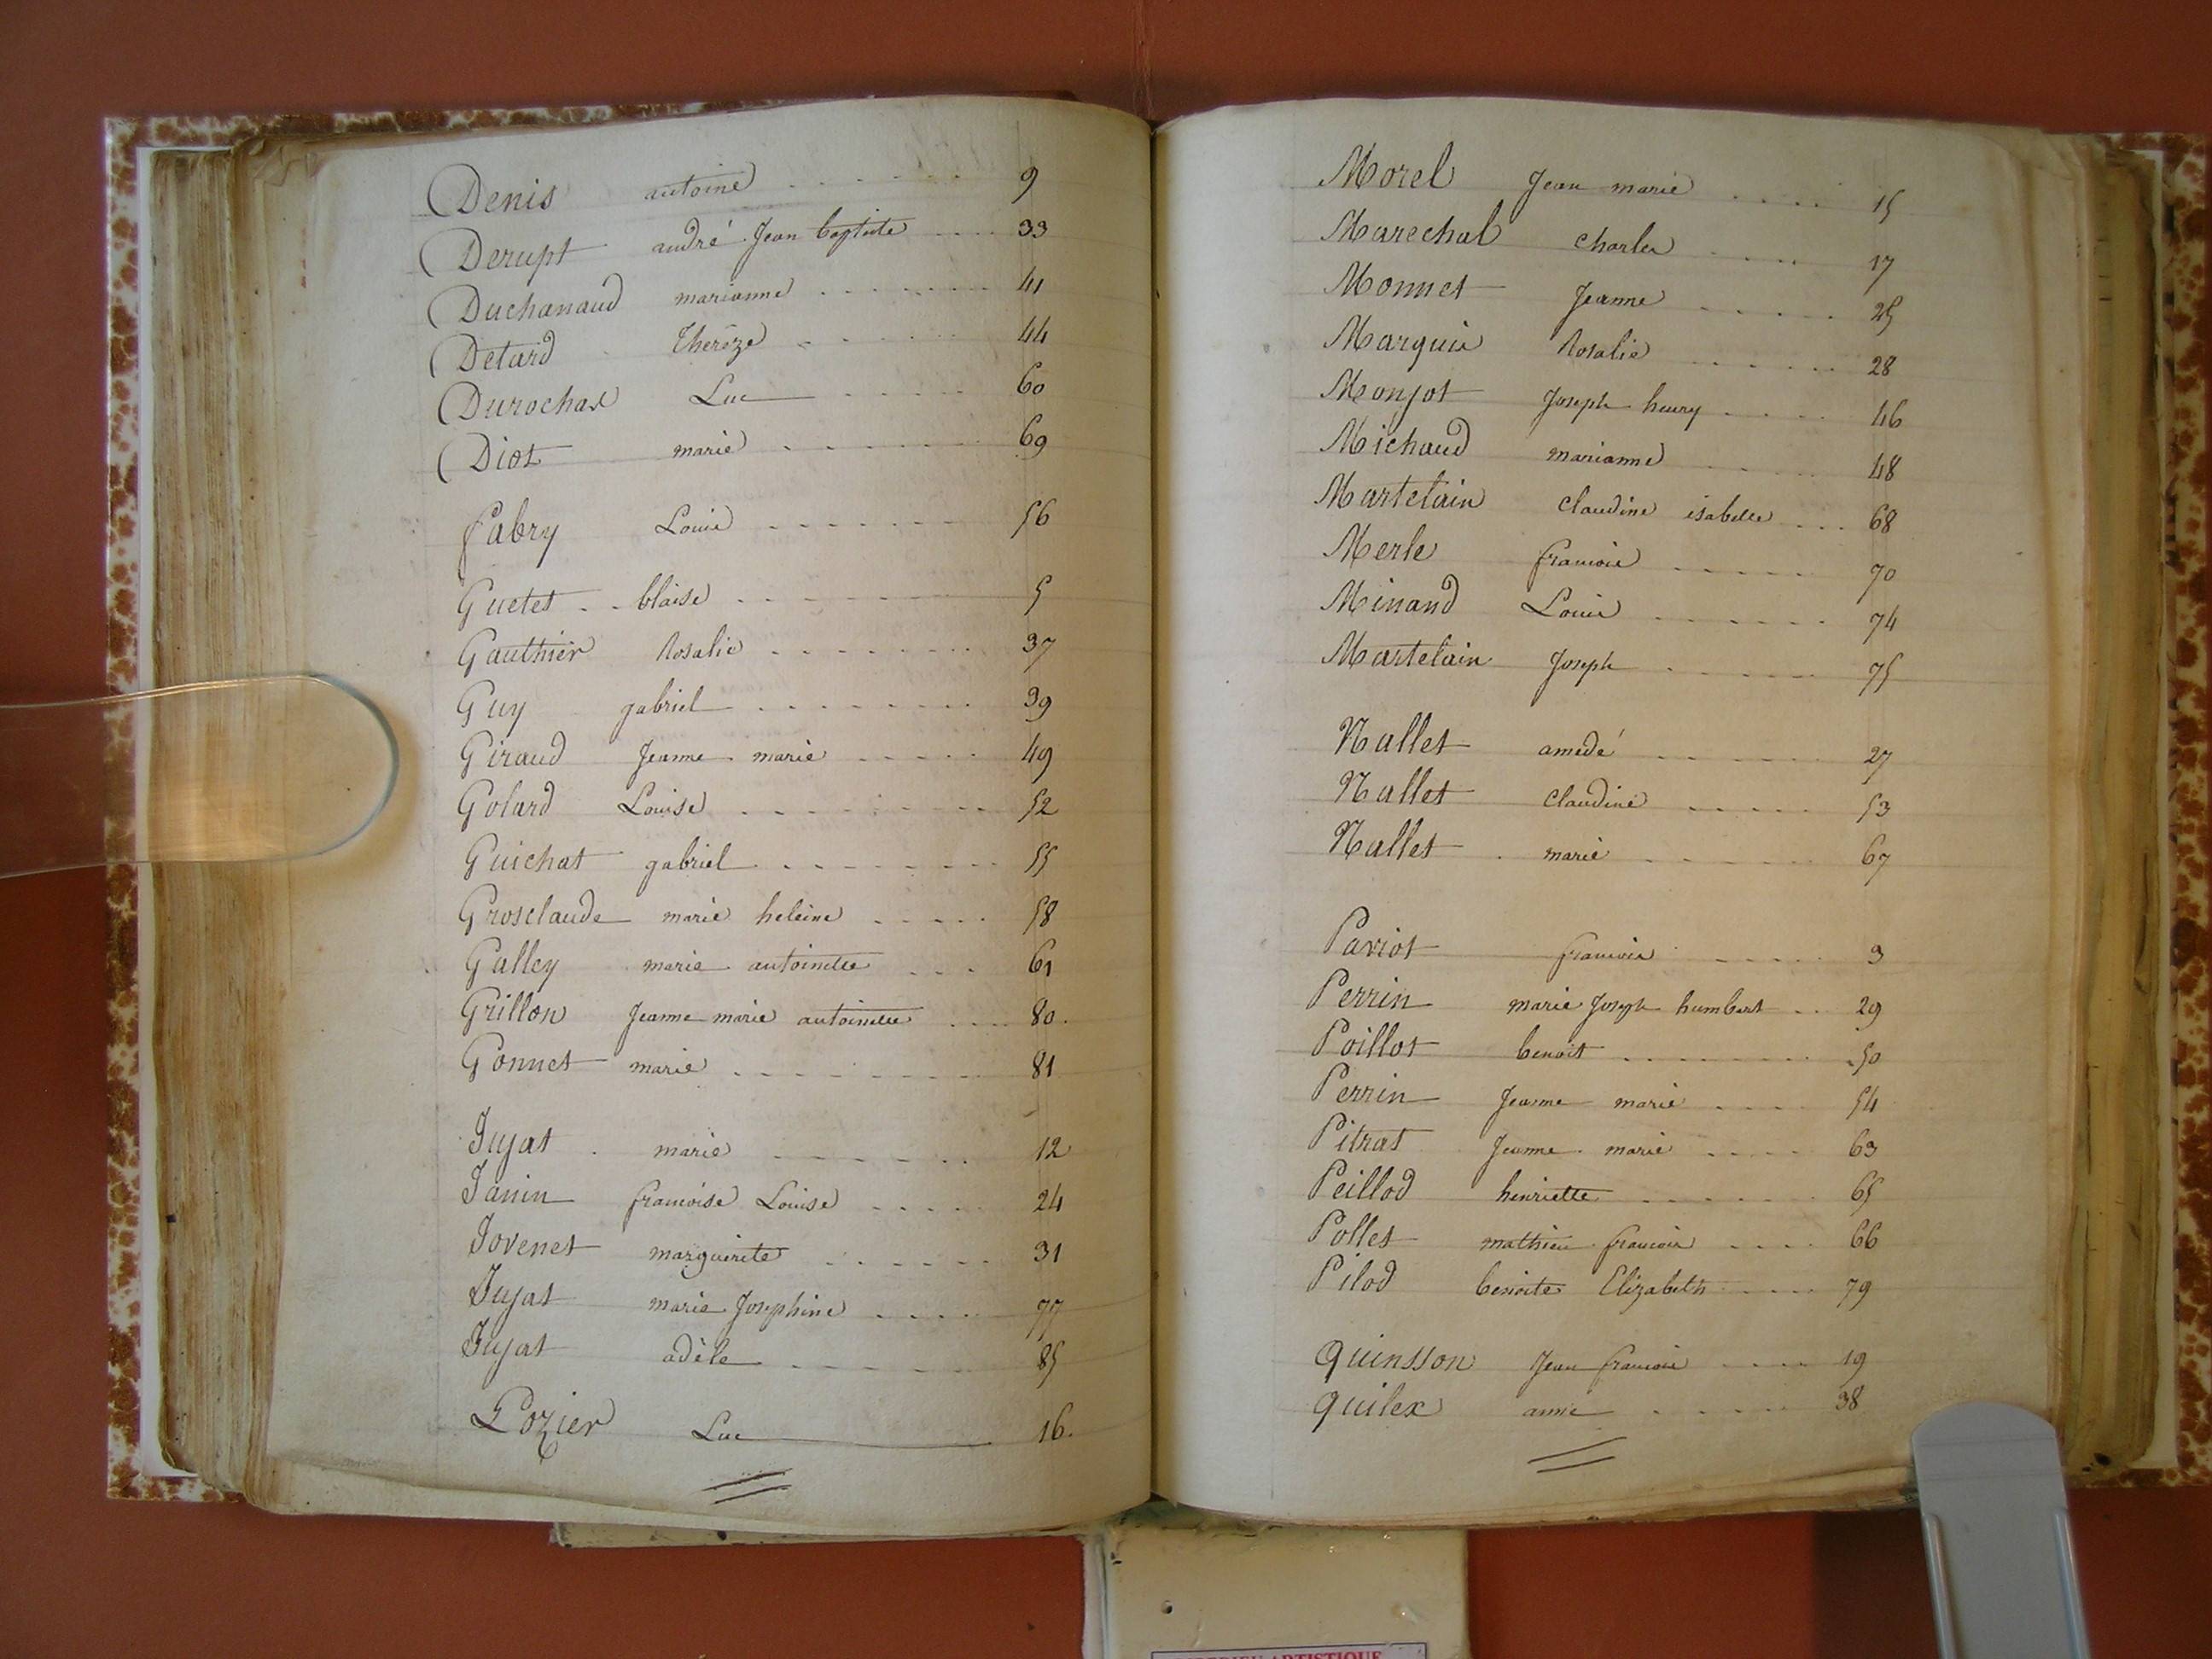 Denis antoine 9
Derupt andré Jean baptiste 33
Duchanaud marianne 41
Detard Thérèze 44
Durochat Luc 60
Diot marie 69
fabry Louis 56
Guetet blaise 5
Gauthier Rosalie 37
Guy gabriel 39
Giraud Jeanne marie 49
Golard Louise 52
Guichat gabriel 55
Grosclaude marie heleine 58
Galley marie antoinette 61
Grillon Jeanne marie antoinette 80.
Gonnet marie 81
Jujat marie 12
Janin francoise Louise 24
Jovenet marguerite 31
Jujat marie Josephine 77
Jujat adèle 85
Lozier Luc 16.
Morel Jean marie 15
Marechal Charles 17
Monnet Jeanne 25
Marquis Rosalie 28
Monjot Joseph henry 46
Michaud marianne 48
Martelain Claudine isabelle 68
Merle francois 70
Minand Louis 74
Martelain Joseph 75
Nallet amedé 27
Nallet Claudine 53
Nallet marie 67
Pariot francois 3
Perrin marie Joseph humbert 29
Poillot benoit 50
Perrin Jeanne marie 54
Pitrat Jeanne marie 63
Peillod henriette 65
Pollet mathieu francois 66
Pilod benoite Elizabeth 79
quinsson Jean francois 19
quilex annie 38